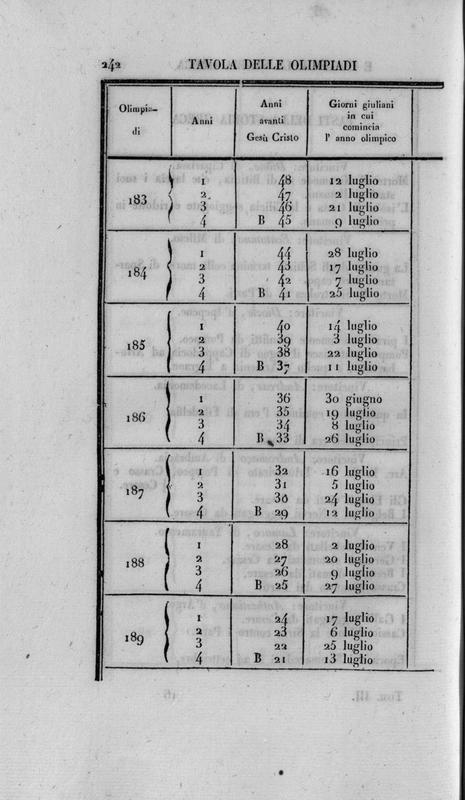 242 TAVOLA DELLE OLIMPIADI
Olimpia-
di
Anni
Anni
avanti
Gesù Cristo
Giorni giuliani
in cui
comincia
l' anno olimpico
183
1 48 12 luglio
2 47 2 luglio
3 46 21 luglio
4 B 45 9 luglio
184
1 44 28 luglio
2 43 17 luglio
3 42 7 luglio
4 B 41 25 luglio
185
1 40 14 luglio
2 39 3 luglio
3 38 22 luglio
4 B 37 11 luglio
186
1 36 30 giugno
2 35 19 luglio
3 34 8 luglio
4 B 33 26 luglio
187
1 32 16 luglio
2 31 5 luglio
3 30 24 luglio
4 B 29 12 luglio
188
1 28 2 luglio
2 27 20 luglio
3 26 9 luglio
4 B 25 27 luglio
189
1 24 17 luglio
2 23 6 luglio
3 22 25 luglio
4 B 21 13 luglio